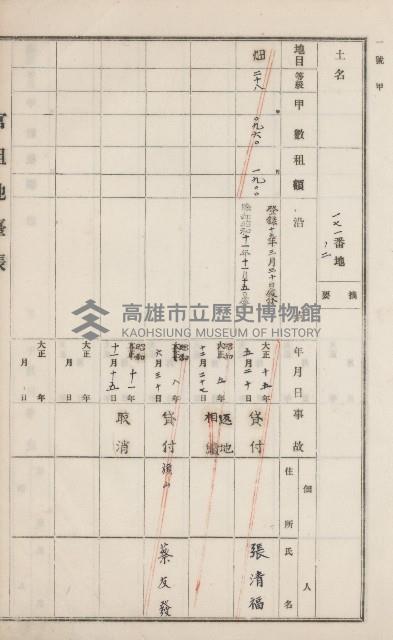 一號甲
土名
一七一番地ノ二
摘要
地目
等級
甲數
租額
沿革
畑
二十八
〇九六〇
一九〇〇
登錄十五年三月三十日
昭和十一年十一月十五日
年月日
事故
佃人
住所
氏名
大正十五年五月二十日
貸付
張清福
昭和五年十二月二十七日
返地
相續
昭和八年六月三十日
貸付
蔡友發
昭和十一年十一月十五日
取消
大正年月日
大正年月日
官租地臺帳
高雄市立歷史博物館
KAOHSIUNG MUSEUM OF HISTORY